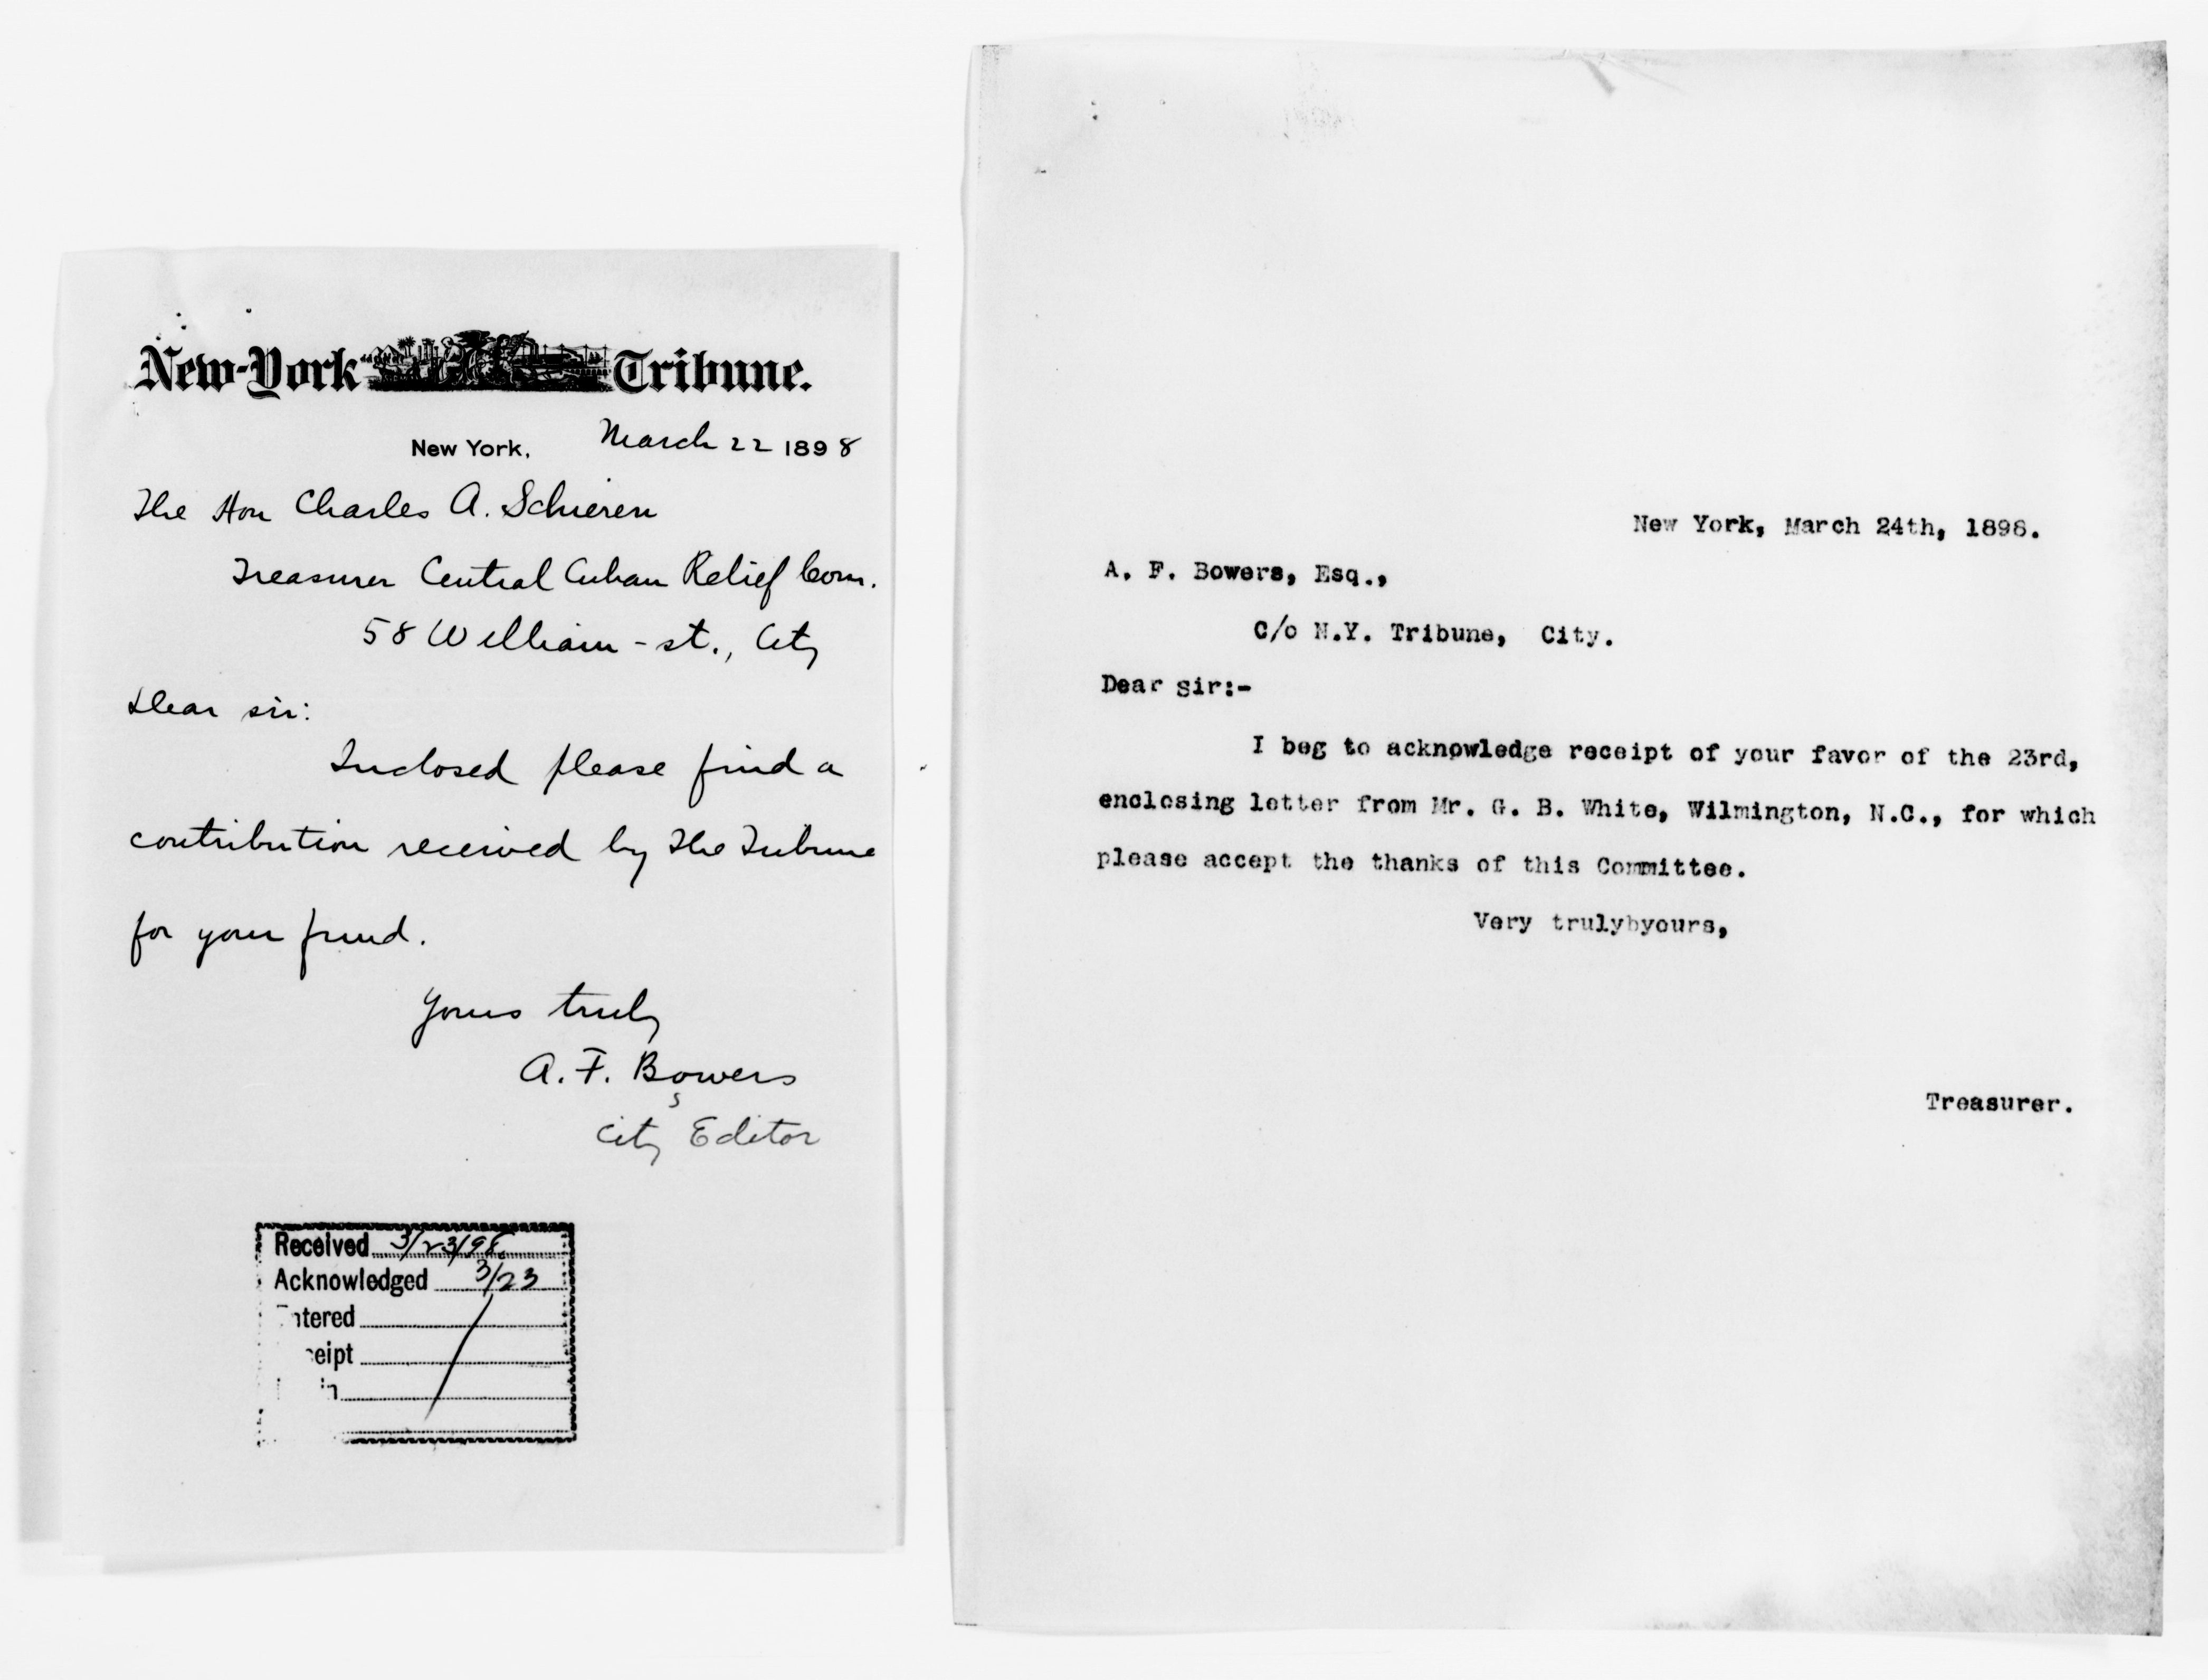 New-York Tribune.
New York, March 22 1898
The Hon Charles A. Schieren
Treasurer Central Cuban Relief Com.
58 William-st., City
Dear sir:
Inclosed please find a
contribution received by The Tribune
for your fund.
Yours truly
A. F. Bowers
City Editor
Received 3/23/98.
Acknowledged 3/23
ntered
eipt
New York, March 24th, 1898.
A. F. Bowers, Esq.,
C/o N.Y. Tribune, City.
Dear sir:-
I beg to acknowledge receipt of your favor of the 23rd,
enclosing letter from Mr. G. B. White, Wilmington, N.C., for which
please accept the thanks of this Committee.
Very trulybyours,
Treasurer.